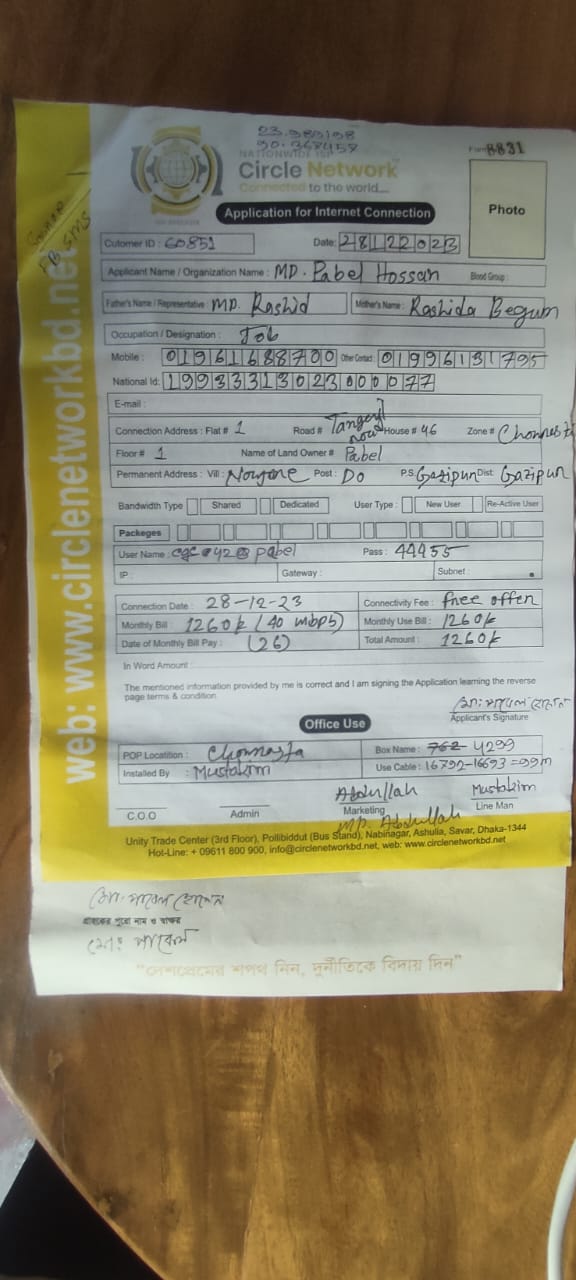 23.989198
90.368458
NATIONWIDE ISP
Circle Network
Connected to the world....
8831
Application for Internet Connection
Photo
Cutomer ID : 60851 Date: 28122023
Applicant Name / Organization Name : MD. Pabel Hossan Blood Group :
Father's Name / Representative : MD. Rashid Mother's Name : Rashida Begum
Occupation / Designation : Job
Mobile : 01961688700 Other Contact : 01996131795
National Id: 19933313023000077
E-mail :
Connection Address : Flat # 1 Road # House # 46 Zone #
Floor # 1 Name of Land Owner # Pabel
Permanent Address : Vill : Post : Do P.S. Gazipur Dist: Gazipur
Bandwidth Type Shared Dedicated User Type : New User Re-Active User
Packeges
User Name : Pass : 44455
IP : Gateway : Subnet :
Connection Date : 28-12-23 Connectivity Fee : free offer
Monthly Bill : 1260k (40 mbps) Monthly Use Bill : 1260k
Date of Monthly Bill Pay : (26) Total Amount : 1260k
In Word Amount :
The mentioned information provided by me is correct and I am signing the Application learning the reverse
page terms & condition.
মো: পাবেল হোসেন
Applicant's Signature
Office Use
POP Locatition : Chowrasta Box Name : 762 4299
Installed By : Mustakim Use Cable : 16792-16693=99m
Abdullah Mustakim
C.O.O Admin Marketing Line Man
MD. Abdullah
Unity Trade Center (3rd Floor), Pollibiddut (Bus Stand), Nabinagar, Ashulia, Savar, Dhaka-1344
Hot-Line: + 09611 800 900, info@circlenetworkbd.net, web: www.circlenetworkbd.net
web: www.circlenetworkbd.net
মো: পাবেল হোসেন
গ্রাহকের পুরো নাম ও স্বাক্ষর
মো: পাবেল
"দেশপ্রেমের শপথ নিন, দুর্নীতিকে বিদায় দিন"